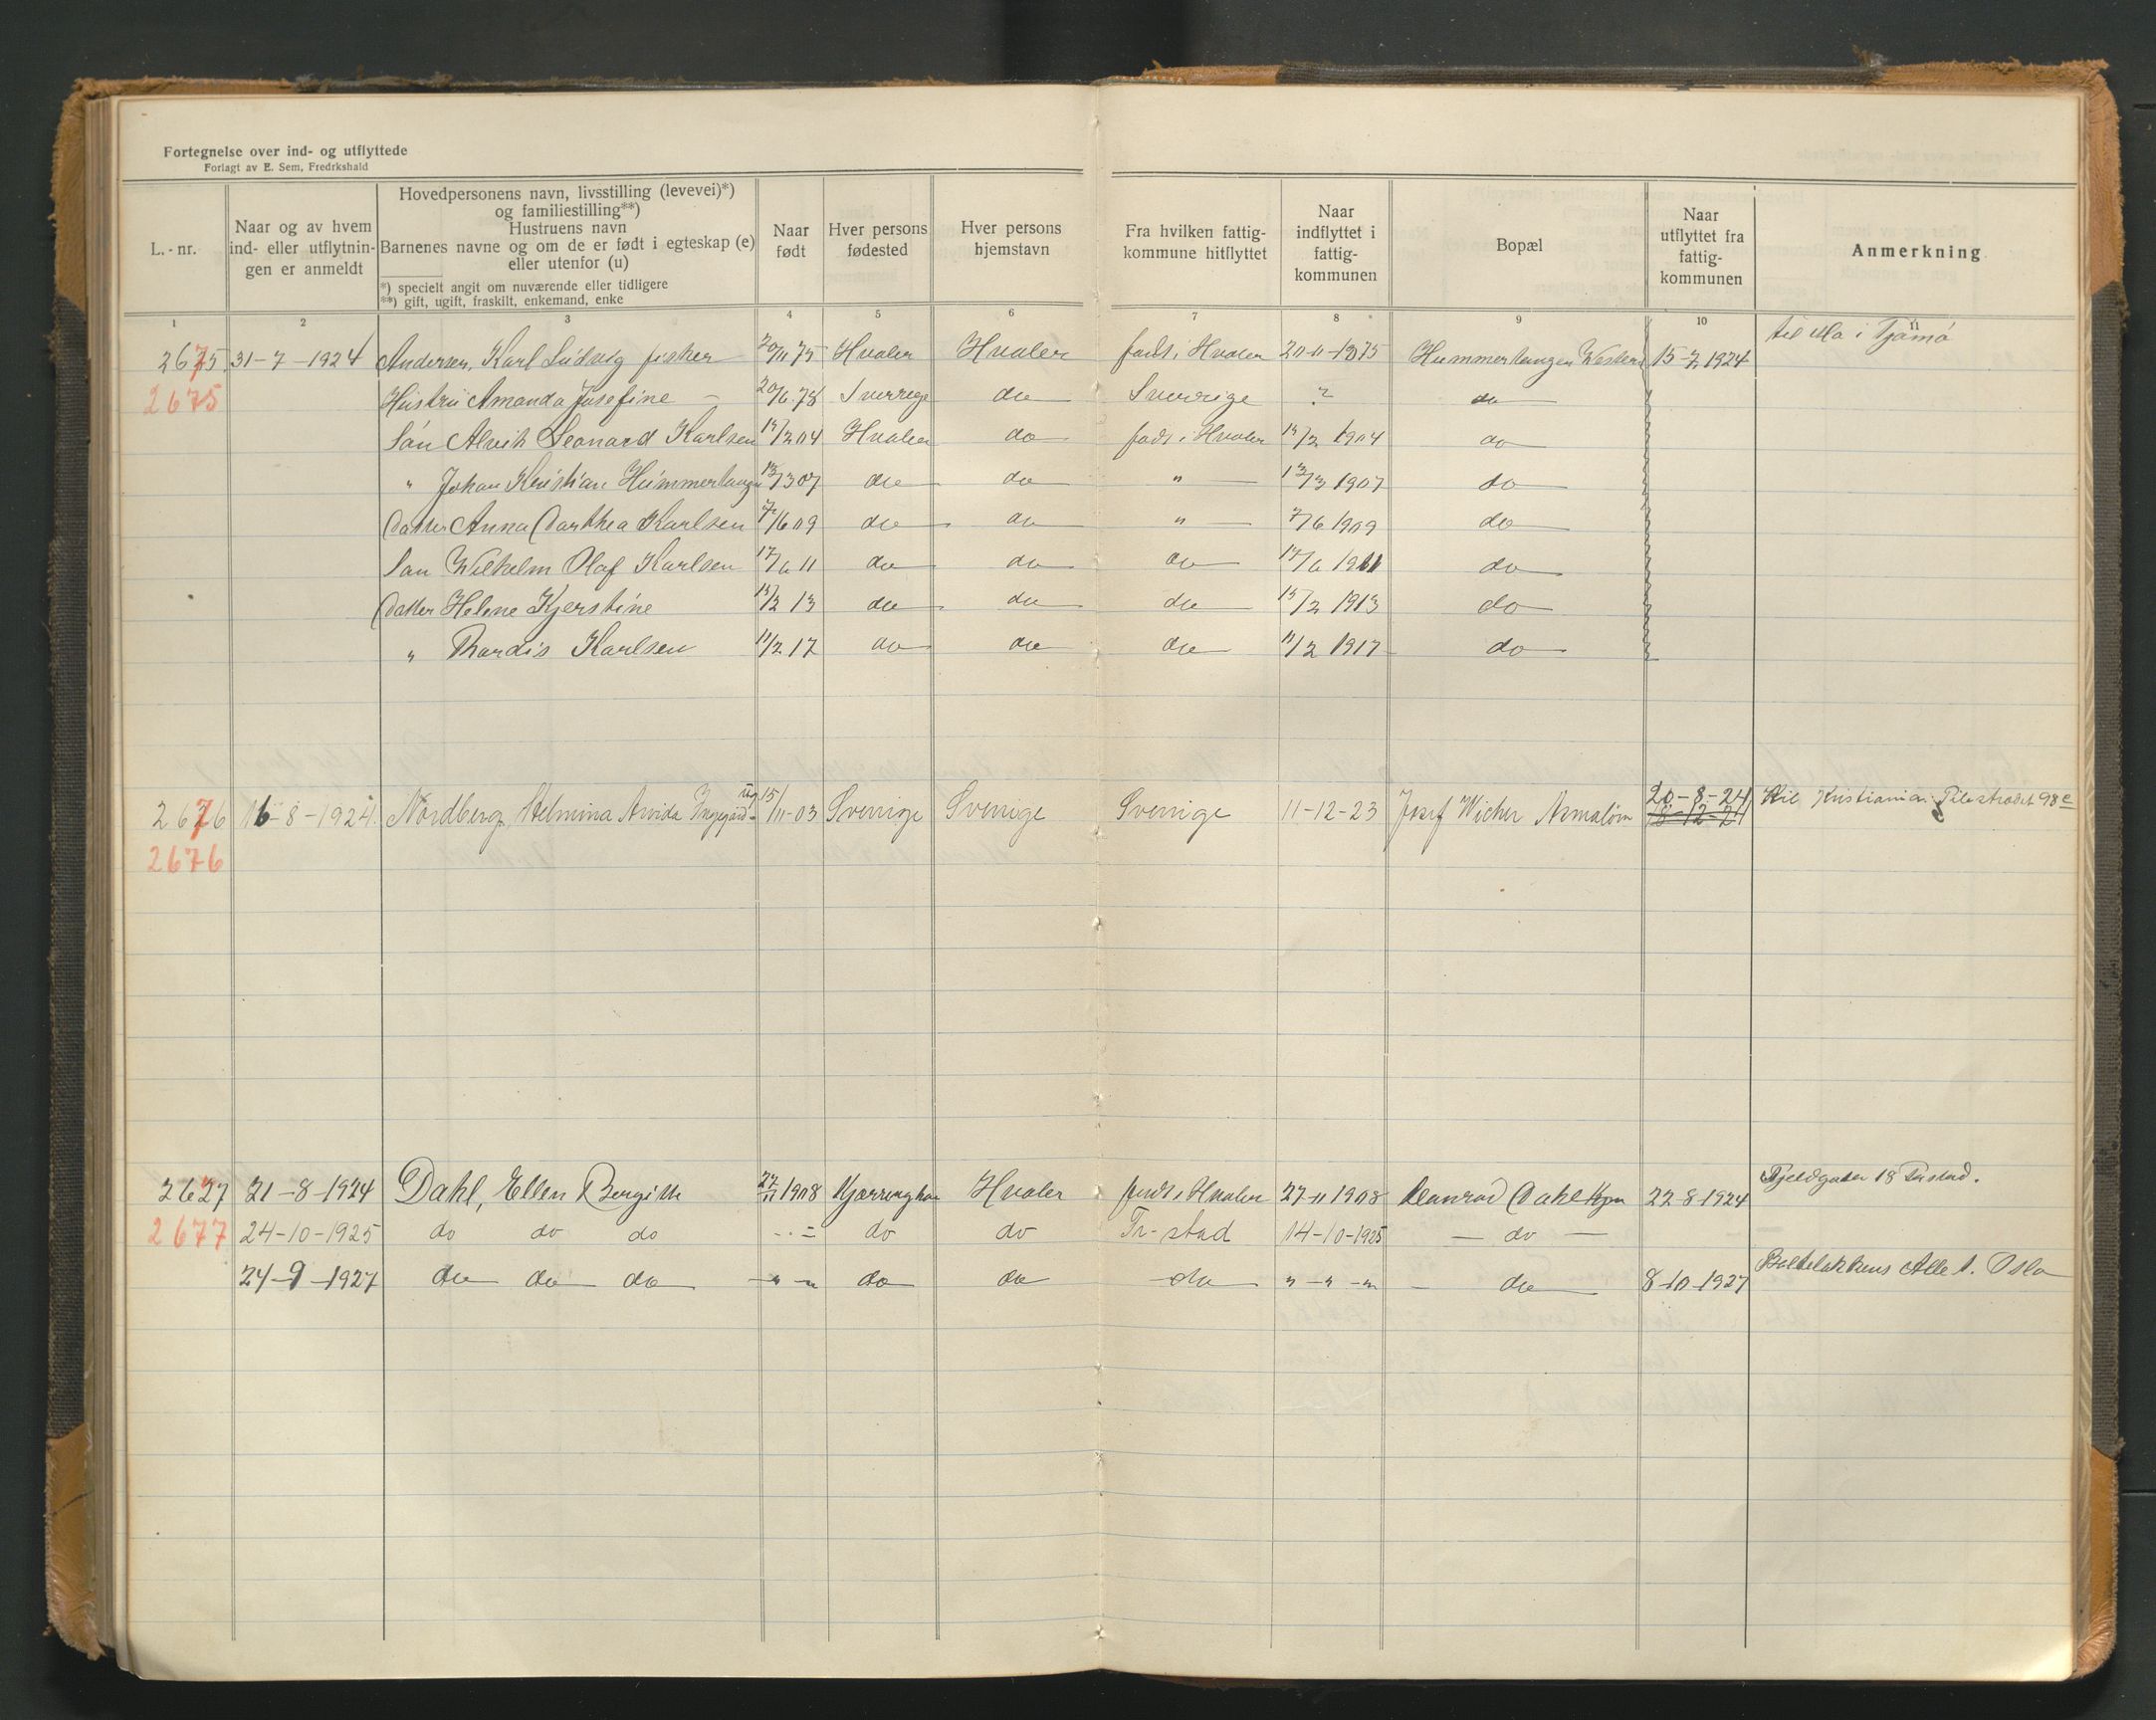 Fortegnelse over ind- og utflyttede
Forlagt av E. Sem, Fredrkshald
L.-nr.
Naar og av hvem
ind- eller utflytnin-
gen er anmeldt
Hovedpersonens navn, livsstilling (levevei)*)
og familiestilling**)
Hustruens navn
Barnenes navne og om de er født i egteskap (e)
eller utenfor (u)
*) specielt angit om nuværende eller tidligere
**) gift, ugift, fraskilt, enkemand, enke
Naar
født
Hver persons
fødested
Hver persons
hjemstavn
Fra hvilken fattig-
kommune hitflyttet
Naar
indflyttet i
fattig-
kommunen
Bopæl
Naar
utflyttet fra
fattig-
kommunen
Anmerkning
1 2 3 4 5 6 7 8 9 10 11
2675 31-7-1924 Andersen, Karl Ludvig fisker 20/11 75 Hvaler Hvaler født i Hvaler 20-11-1875 Hummertangen 15-7 1924 til i Tjømø
2675 Hustru Amanda Josefine 20/6 78 Sverrige do Sverrige ? do
Søn Alvik Leonard Karlsen 14/2 04 Hvaler do født i Hvaler 14/2 1904 do
" Johan Kristian Hummertangen 13/3 07 do do " 13/3 1907 do
Datter Anna Darthea Karlsen 7/6 09 do do " 7/6 1909 do
Søn Wilhelm Olaf Karlsen 17/6 11 do do do 17/6 1911 do
Datter Helene Kjerstine 15/2 13 do do do 15/2 1913 do
" Karlsen 11/2 17 do do do 11/2 1917 do
2676 16-8-1924 Nordberg, Helmina Arvida Ingegärd ug 15/11-03 Sverrige Sverrige Sverrige 11-12-23 Josef Wicher 20-8-24 til Kristiania Pilestrædet 98c
2676
2677 21-8-1924 Dahl, Ellen Bergitte 27/11 1908 Kjærringhav Hvaler født i Hvaler 27-11 1908 Konrad Dahl 22-8-1924 Fjeldgaten 18
2677 24-10-1925 do do do -"- do do Fr-stad 14-10-1925 - do -
24-9-1927 do do do -"-" do do do "-"-" - do 8-10-1927 Balkelakkens Alle 1. Oslo